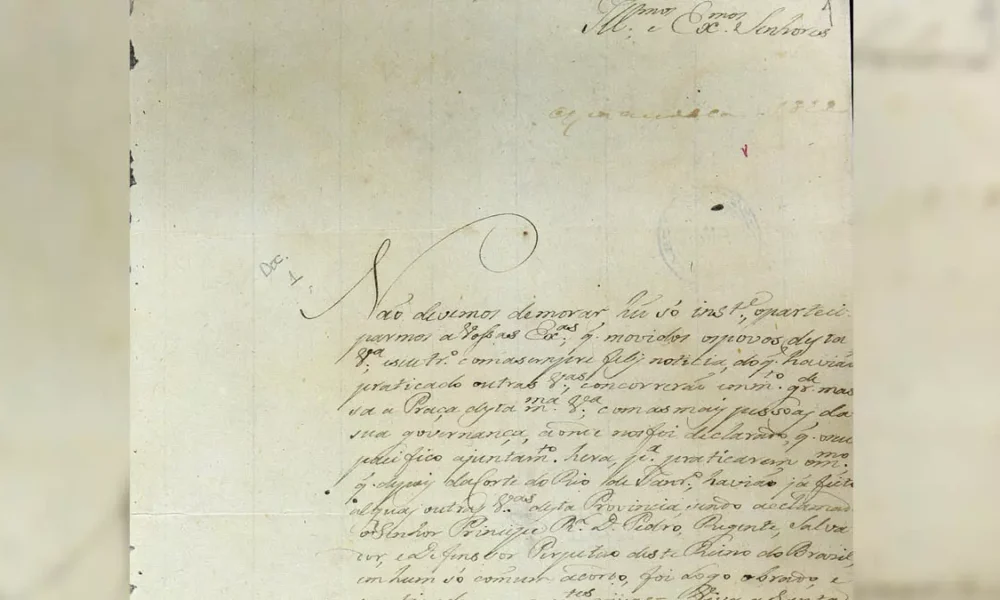 Ill.mos e Ex.mos Senhores
1822
Doc.
1
Não devimos demorar hú só inst.e, o parteci-
parmos a Vossas Ex.as, q. movidos os povos desta
V.a e seu tr.o com a sempre feliz noticia, do q. havião
praticado outras V.as, concorrerão em m.to gr.de mas
sa a Praça desta m.ma V.a, com as mais pessoas da
sua governança, aonde nos foi declarado, q. o seu
pacifico ajuntam.to hera, p.a praticarem o m.mo
q. depois da Corte do Rio de Janr.o, havião já feito
algũas outras V.as desta Provincia, sendo aclamado
o Senhor Principe R.l D. Pedro, Regente, Salva
dor, e Defensor Perpetuo deste Reino do Brasil,
em hum só comum acordo, foi logo obrado, e